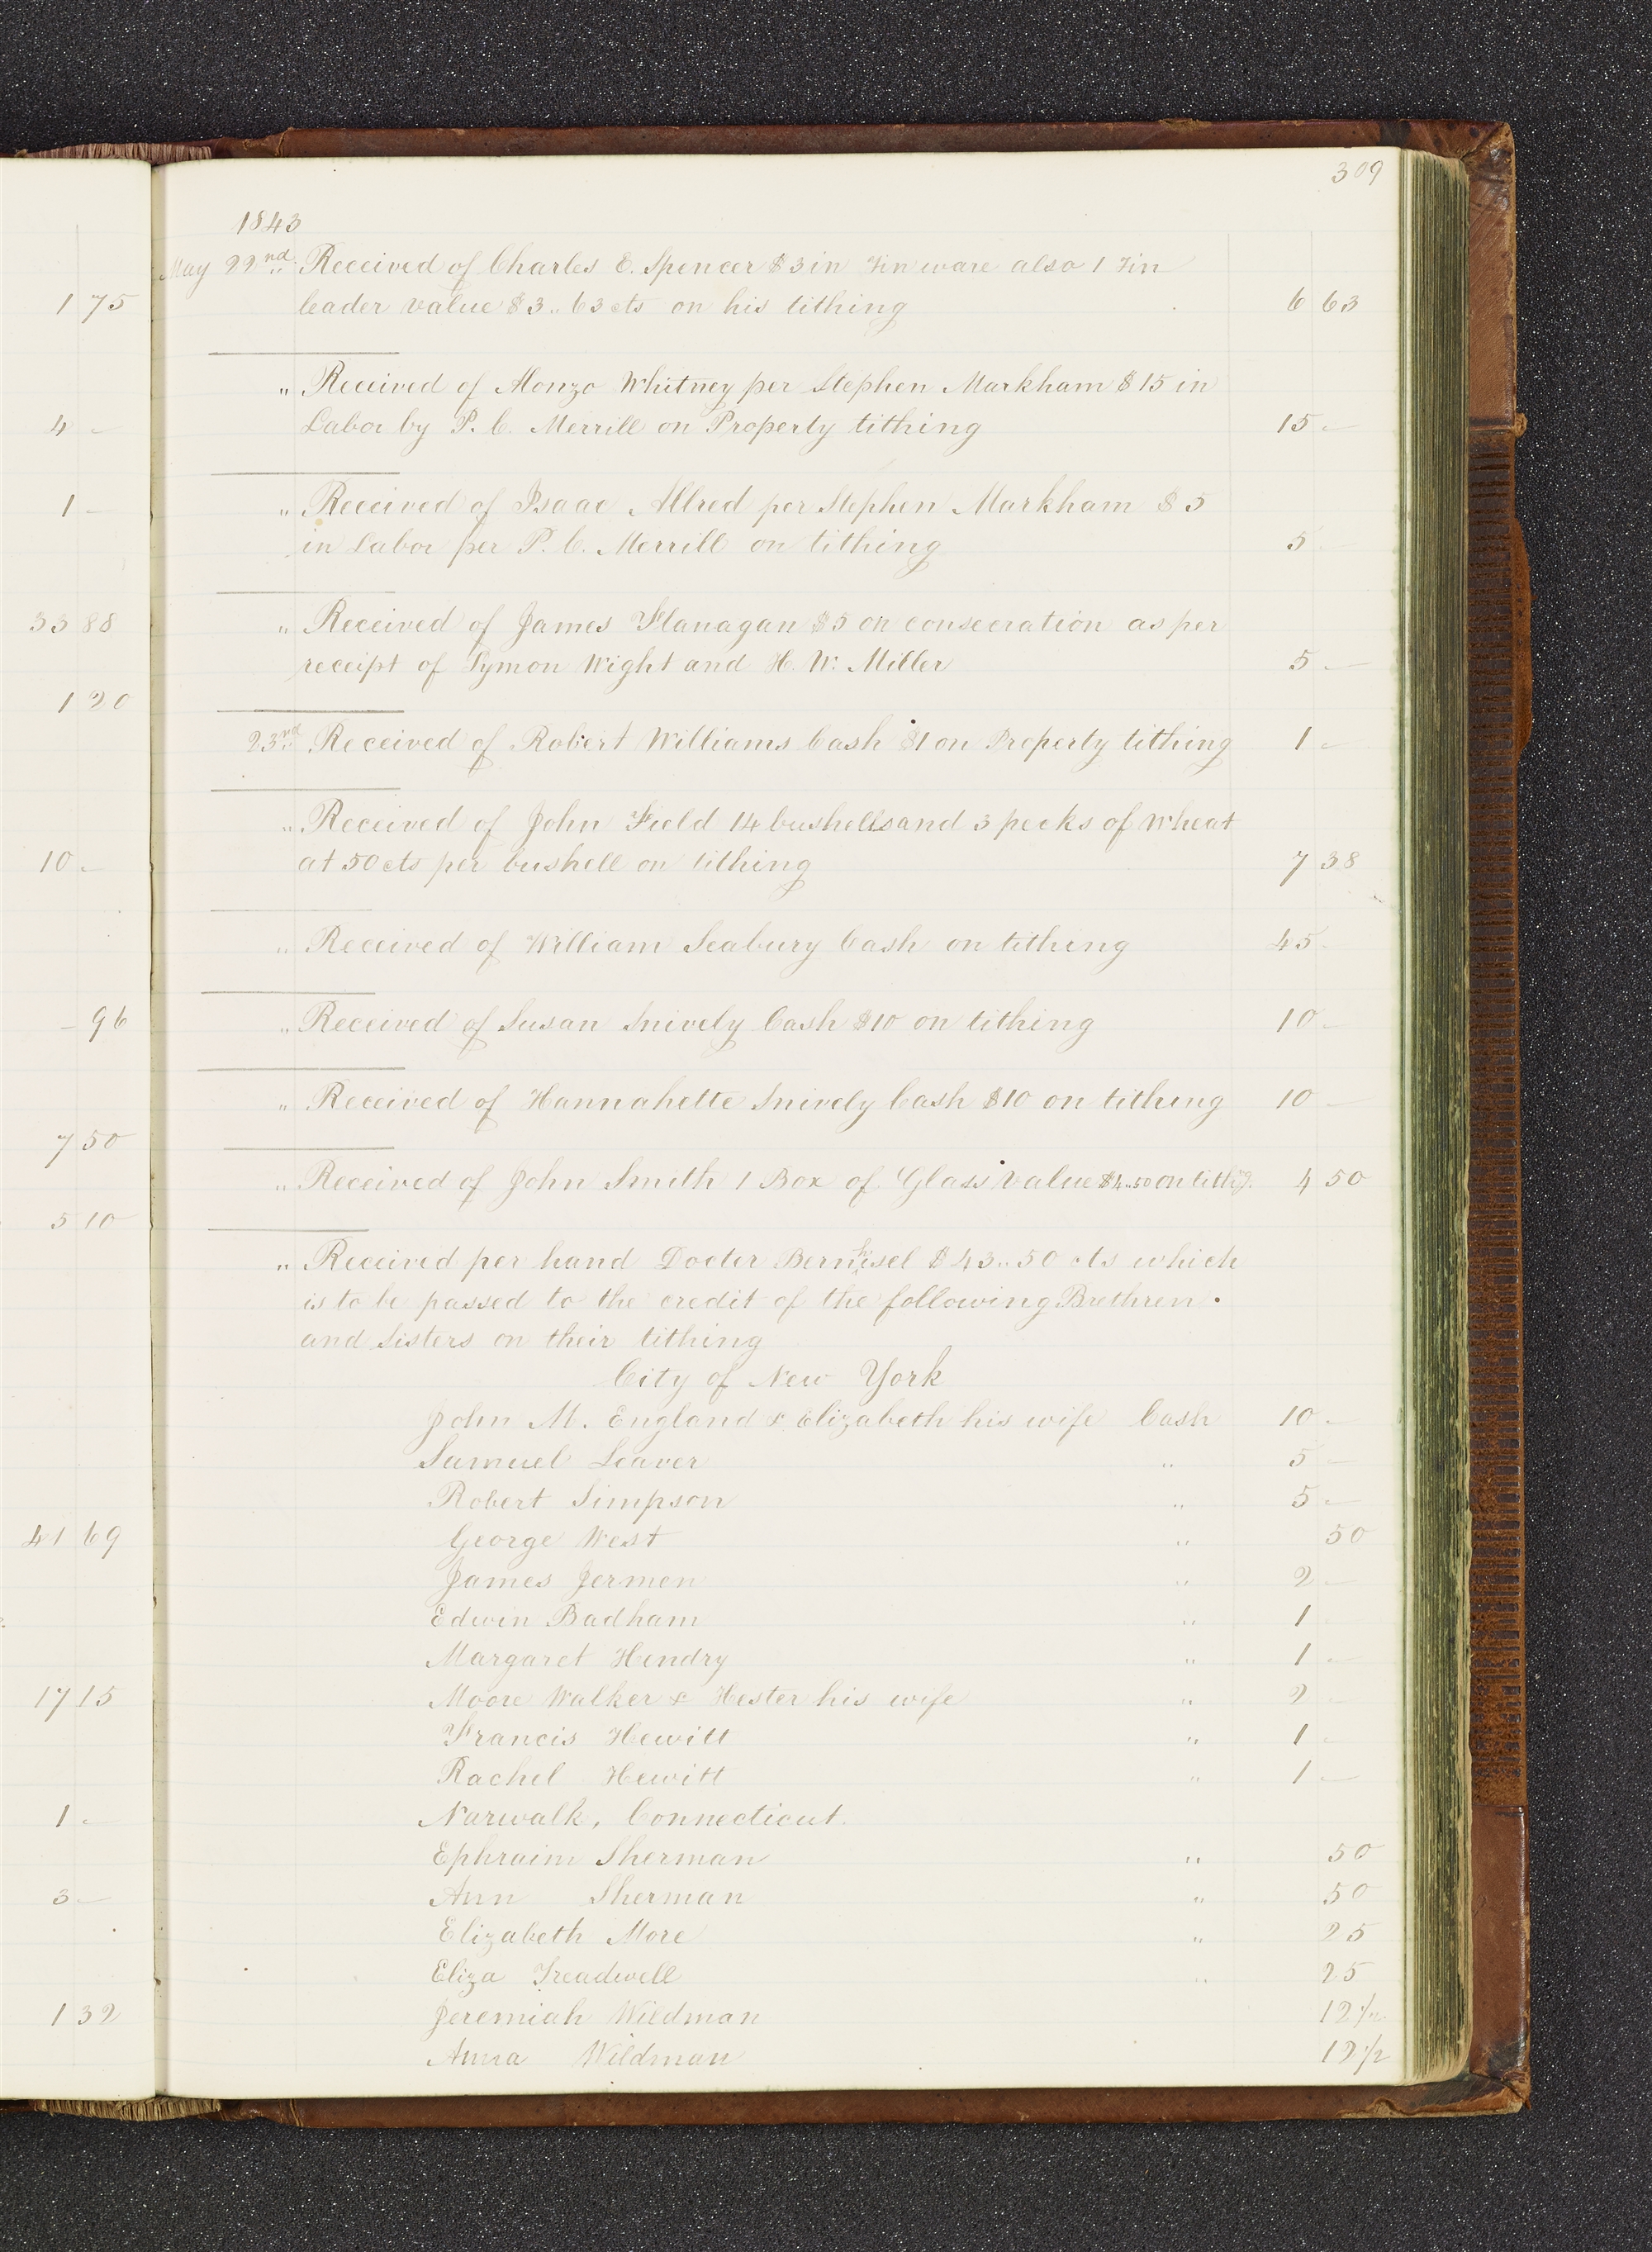 1 75
4 -
1 -
33 88
1 20
10 -
- 96
7 50
5 10
41 69
17 15
1 -
3 -
1 32
309
1843
May 22nd. Received of Charles E. Spencer $3 in Tin ware also 1 Tin
leader value $3..63 cts on his tithing 6 63
" Received of Alonzo Whitney per Stephen Markham $15 in
Labor by P. C. Merrill on Property tithing 15 -
" Received of Isaac Allred per Stephen Markham $5
in Labor per P. C. Merrill on tithing 5 -
" Received of James Flanagan $5 on consecration as per
receipt of Lymon Wight and H. W. Miller 5 -
23rd Received of Robert Williams Cash $1 on Property tithing 1 -
" Received of John Field 14 bushells and 3 pecks of Wheat
at 50 cts per bushell on tithing 7 38
" Received of William Seabury Cash on tithing 45 -
" Received of Susan Snively Cash $10 on tithing 10 -
" Received of Hannahette Snively Cash $10 on tithing 10 -
" Received of John Smith 1 Box of Glass Value $4..50 on tithg. 4 50
" Received per hand Docter Bernhisel $43..50 cts which
is to be passed to the credit of the following Brethren
and Sisters on their tithing
City of New York
John M. England & Elizabeth his wife Cash 10 -
Samuel Leaver " 5 -
Robert Simpson " 5 -
George West " 50
James Jermen " 2 -
Edwin Badham " 1 -
Margaret Hendry " 1 -
Moore Walker & Hester his wife " 2 -
Francis Hewitt " 1 -
Rachel Hewitt " 1 -
Narwalk, Connecticut.
Ephraim Sherman " 50
Ann Sherman " 50
Elizabeth More " 25
Eliza Treadwell " 25
Jeremiah Wildman 12 1/2
Anna Wildman 12 1/2